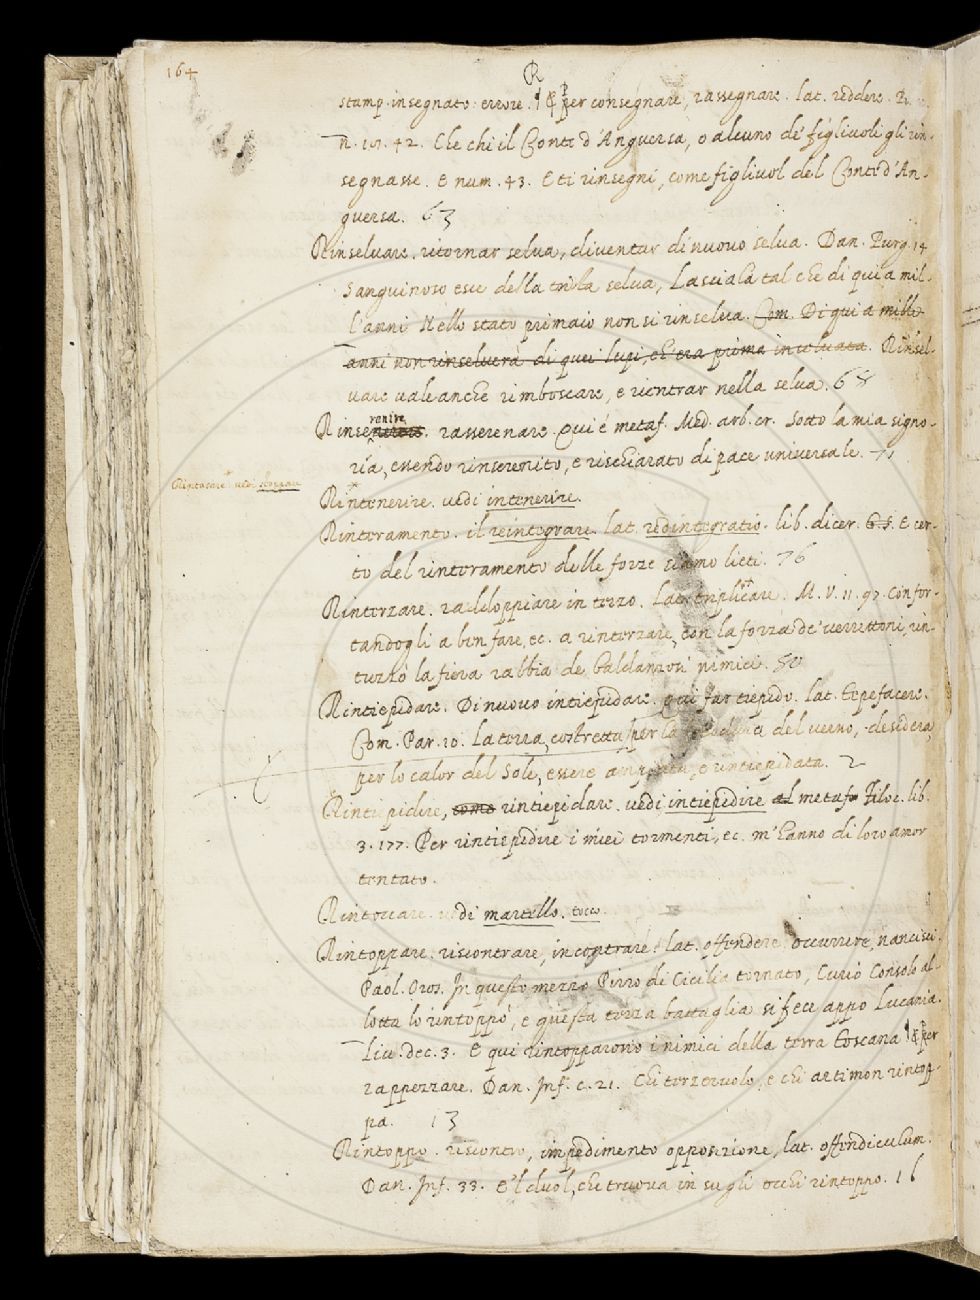 164
R
stamp. insegnato. errore. ¶ & Per consegnare, rassegnare. lat. reddere.
n. 101. 42. Che chi il Conte d'Anguersa, o alcuno de' figliuoli gli rin-
segnasse. E num. 43. E ti rinsegni, come figliuol del Conte d'An-
guersa. 63
Rinselvare. ritornar selva, diventar di nuovo selva. Dan. Purg. 14
Sanguinoso esce della trista selva, Lasciala tal che di qui a mil-
l'anni Nello stato primaio non si rinselva. Com. Di qui a mille
anni non rinselverà di quei lupi, ch'era prima inselvata. Rinsel-
vare vale anche rimboscare, e rientrar nella selva. 68
Rinserenire. rasserenare. Qui é metaf. Med. arb. cr. Sotto la mia signo-
ria, essendo rinserenito, e rischiarato di pace universale. 71
Rintasare vedi
Rintenerire. vedi intenerire.
Rinteramento. il reintegrare. lat. redintegratio. lib. dicer. E cer-
to del rinteramento delle forze siamo lieti. 76
Rinterzare. raddoppiare in terzo. Lat. triplicare. M. V. 11. 97. Confor-
tandogli a ben fare, ec. a rinterzare, con la forza de' verrettoni, rin-
tuzzò la fiera rabbia de baldanzosi nimici. 80
Rintiepidare. Di nuovo intiepidare. qui far tiepido. Lat. tepefacere.
Com. Par. 10. La terra, costretta per la del verno, desidera,
per lo calor del Sole, essere e rintiepidata. 2
Rintiepidire, come rintiepidare. vedi intiepidire al metaf. Filoc. lib.
3. 177. Per rintiepidire i miei tormenti, ec. m'hanno di loro amor
tentato.
Rintoccare. vedi martello. tocco.
Rintoppare. riscontrare, incontrare. lat. offendere. occurrere, nancisci.
Paol. Oros. In questo mezzo Pirro di Cicilia tornato, Curio Consolo al-
lotta lo rintoppò, e questa terza battaglia si fece appo Lucania.
Liv. dec. 3. E qui rintopparono i nimici della terra Toscana ¶ & Per
rappezzare. Dan. Inf. c. 21. Chi terzeruolo, e chi artimon rintop-
pa. 13
Rintoppo. riscontro, impedimento opposizione, lat. offendiculum.
Dan. Inf. 33. E'l duol, che truova in su gli occhi rintoppo. 16